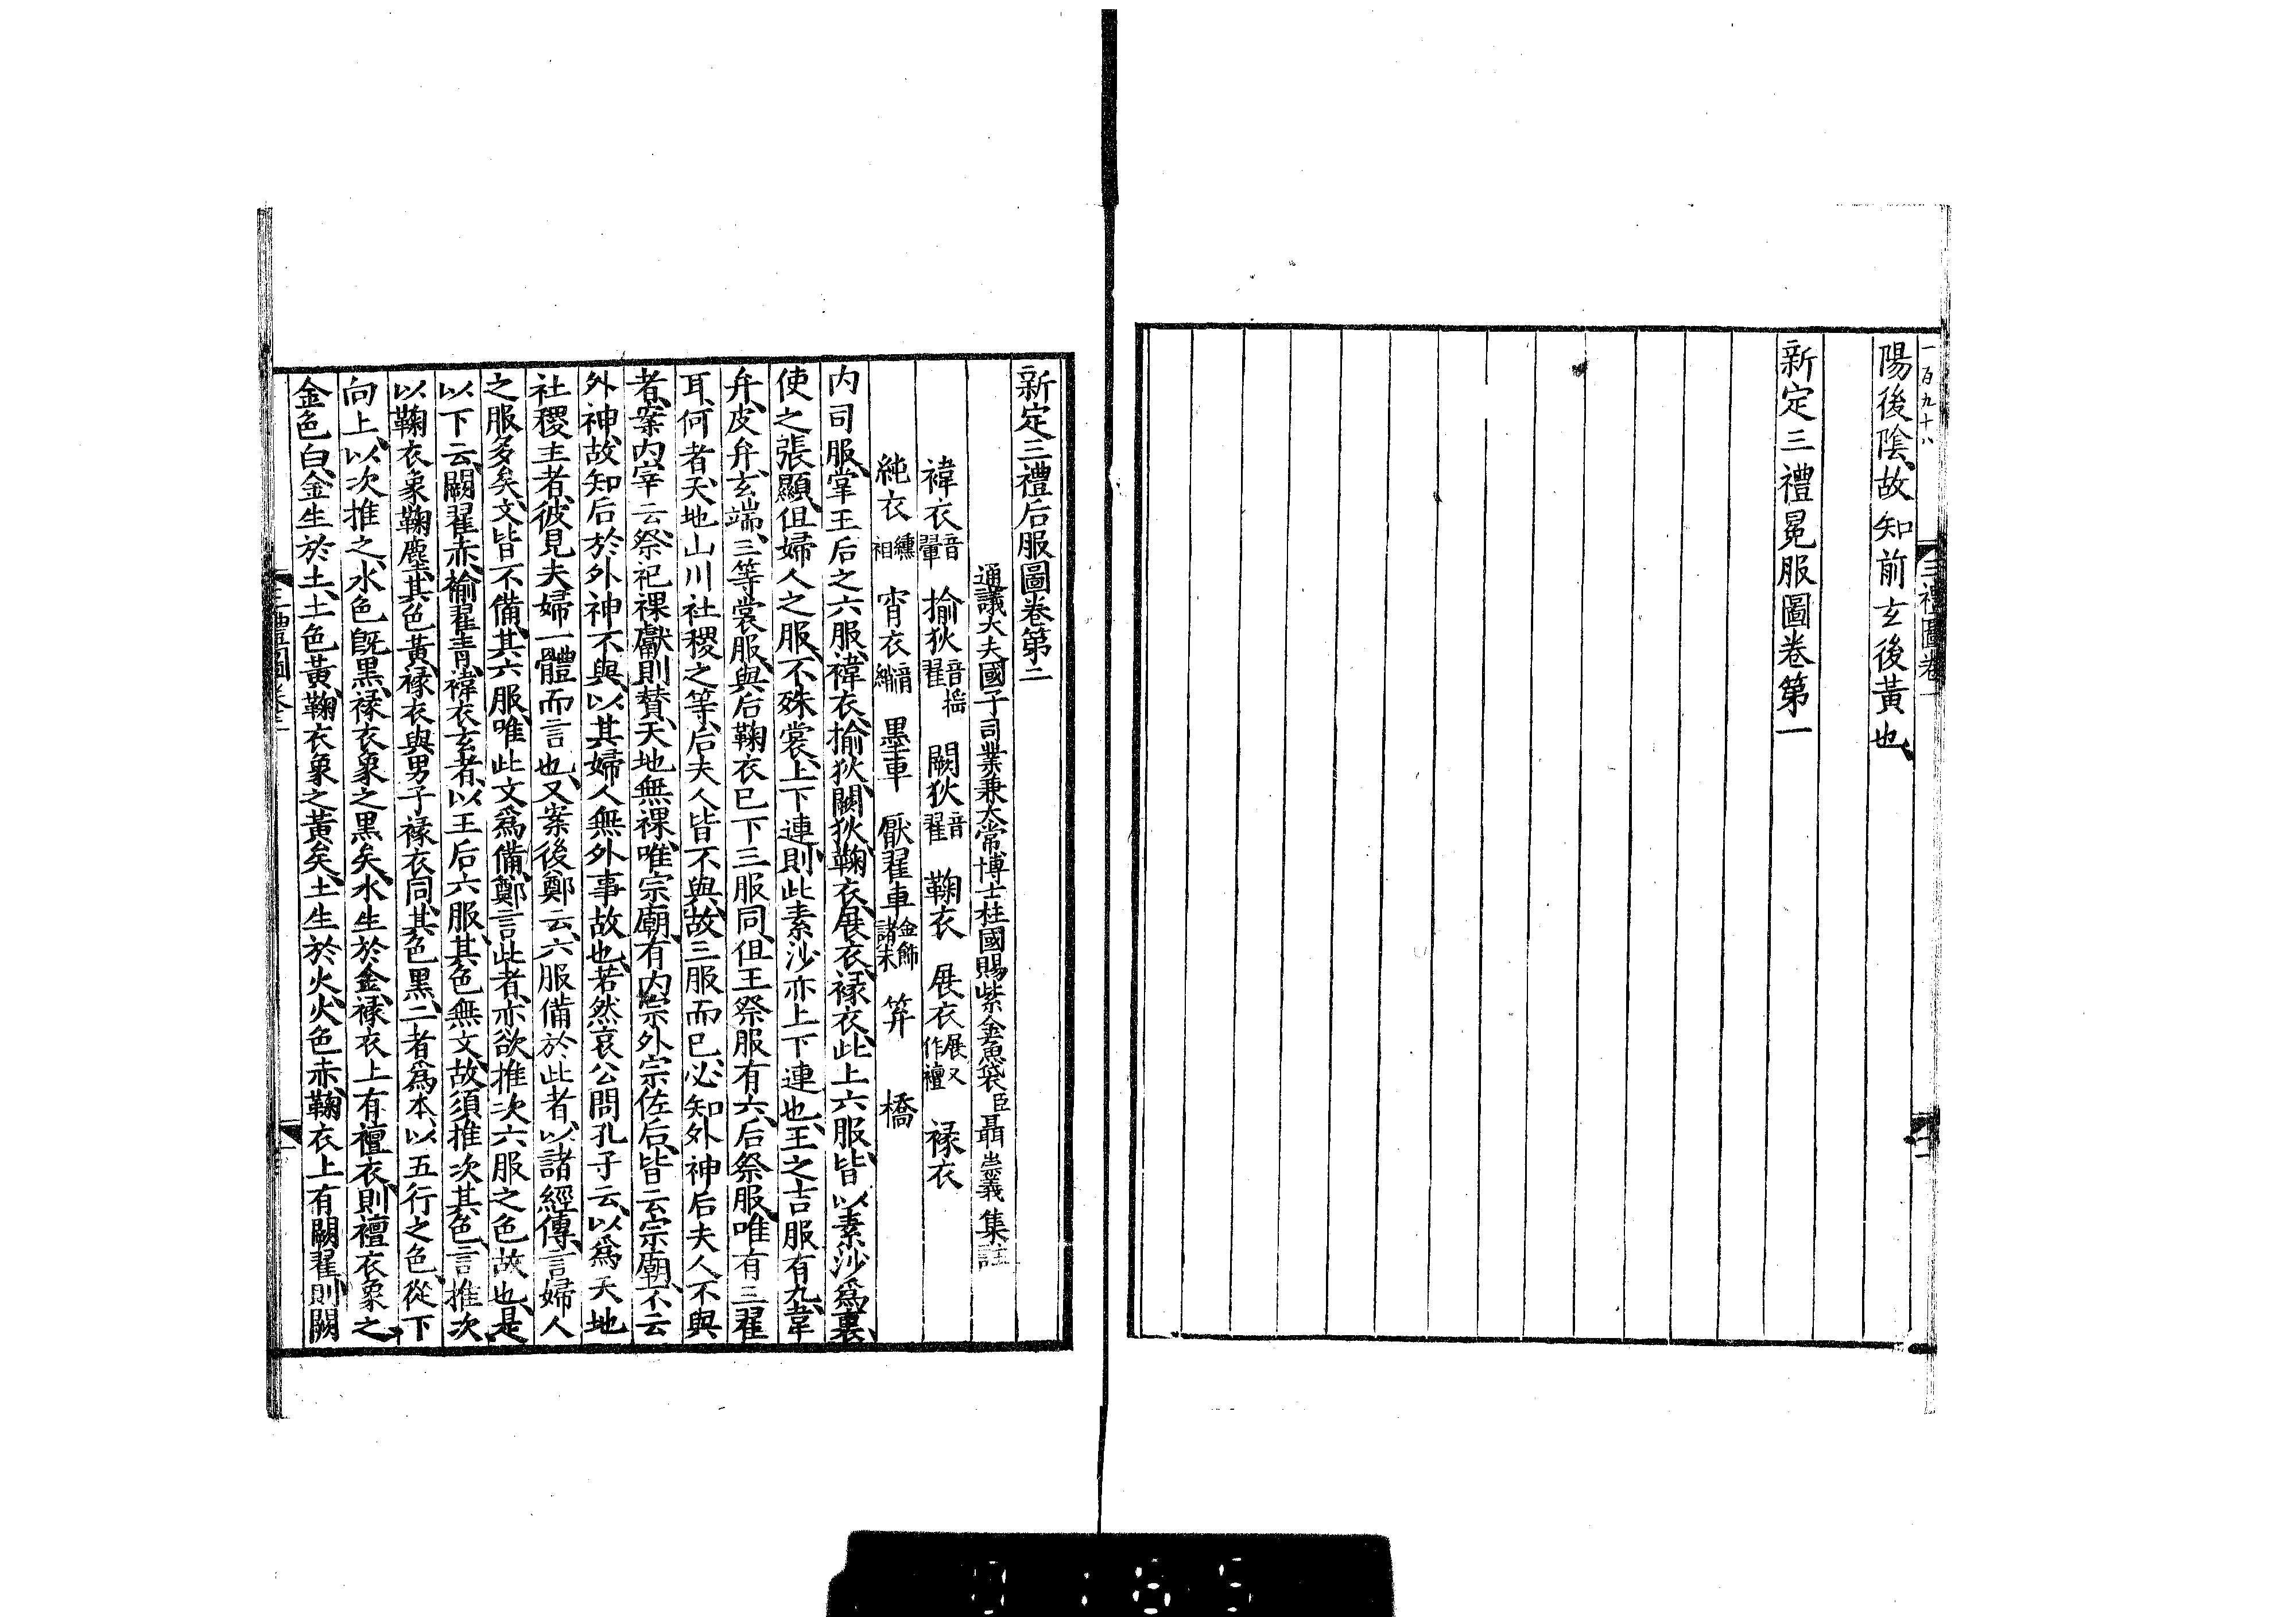 一百九十八
三禮圖卷一
陽後陰故知前玄後黃也
新定三禮冕服圖卷第一
新定三禮后服圖卷第二
通議大夫國子司業兼太常博士柱國賜紫金魚袋臣聶崇義集註
褘衣音翬 揄狄音搖翟 闕狄音翟 鞠衣 展衣展又作襢 褖衣
純衣纁袡 宵衣音綃 墨車 厭翟車金飾諸末 笄 橋
内司服掌王后之六服褘衣揄狄闕狄鞠衣展衣褖衣此上六服皆以素沙爲裏
使之張顯但婦人之服不殊裳上下連則此素沙亦上下連也王之吉服有九韋
弁皮弁玄端三等裳服與后鞠衣已下三服同但王祭服有六后祭服唯有三翟
耳何者天地山川社稷之等后夫人皆不與故三服而已必知外神后夫人不與
者案内宰云祭祀祼獻則贊天地無祼唯宗廟有内宗外宗佐后皆云宗廟不云
外神故知后於外神不與以其婦人無外事故也若然哀公問孔子云以爲天地
社稷主者彼見夫婦一體而言也又案後鄭云六服備於此者以諸經傳言婦人
之服多矣文皆不備其六服唯此文爲備鄭言此者亦欲推次六服之色故也是
以下云闕翟赤揄翟青褘衣玄者以王后六服其色無文故須推次其色言推次
以鞠衣象鞠塵其色黃褖衣與男子褖衣同其色黑二者爲本以五行之色從下
向上以次推之水色既黑褖衣象之黑矣水生於金褖衣上有襢衣則襢衣象之
金色白金生於土土色黃鞠衣象之黃矣土生於火火色赤鞠衣上有闕翟則闕
三禮圖卷二